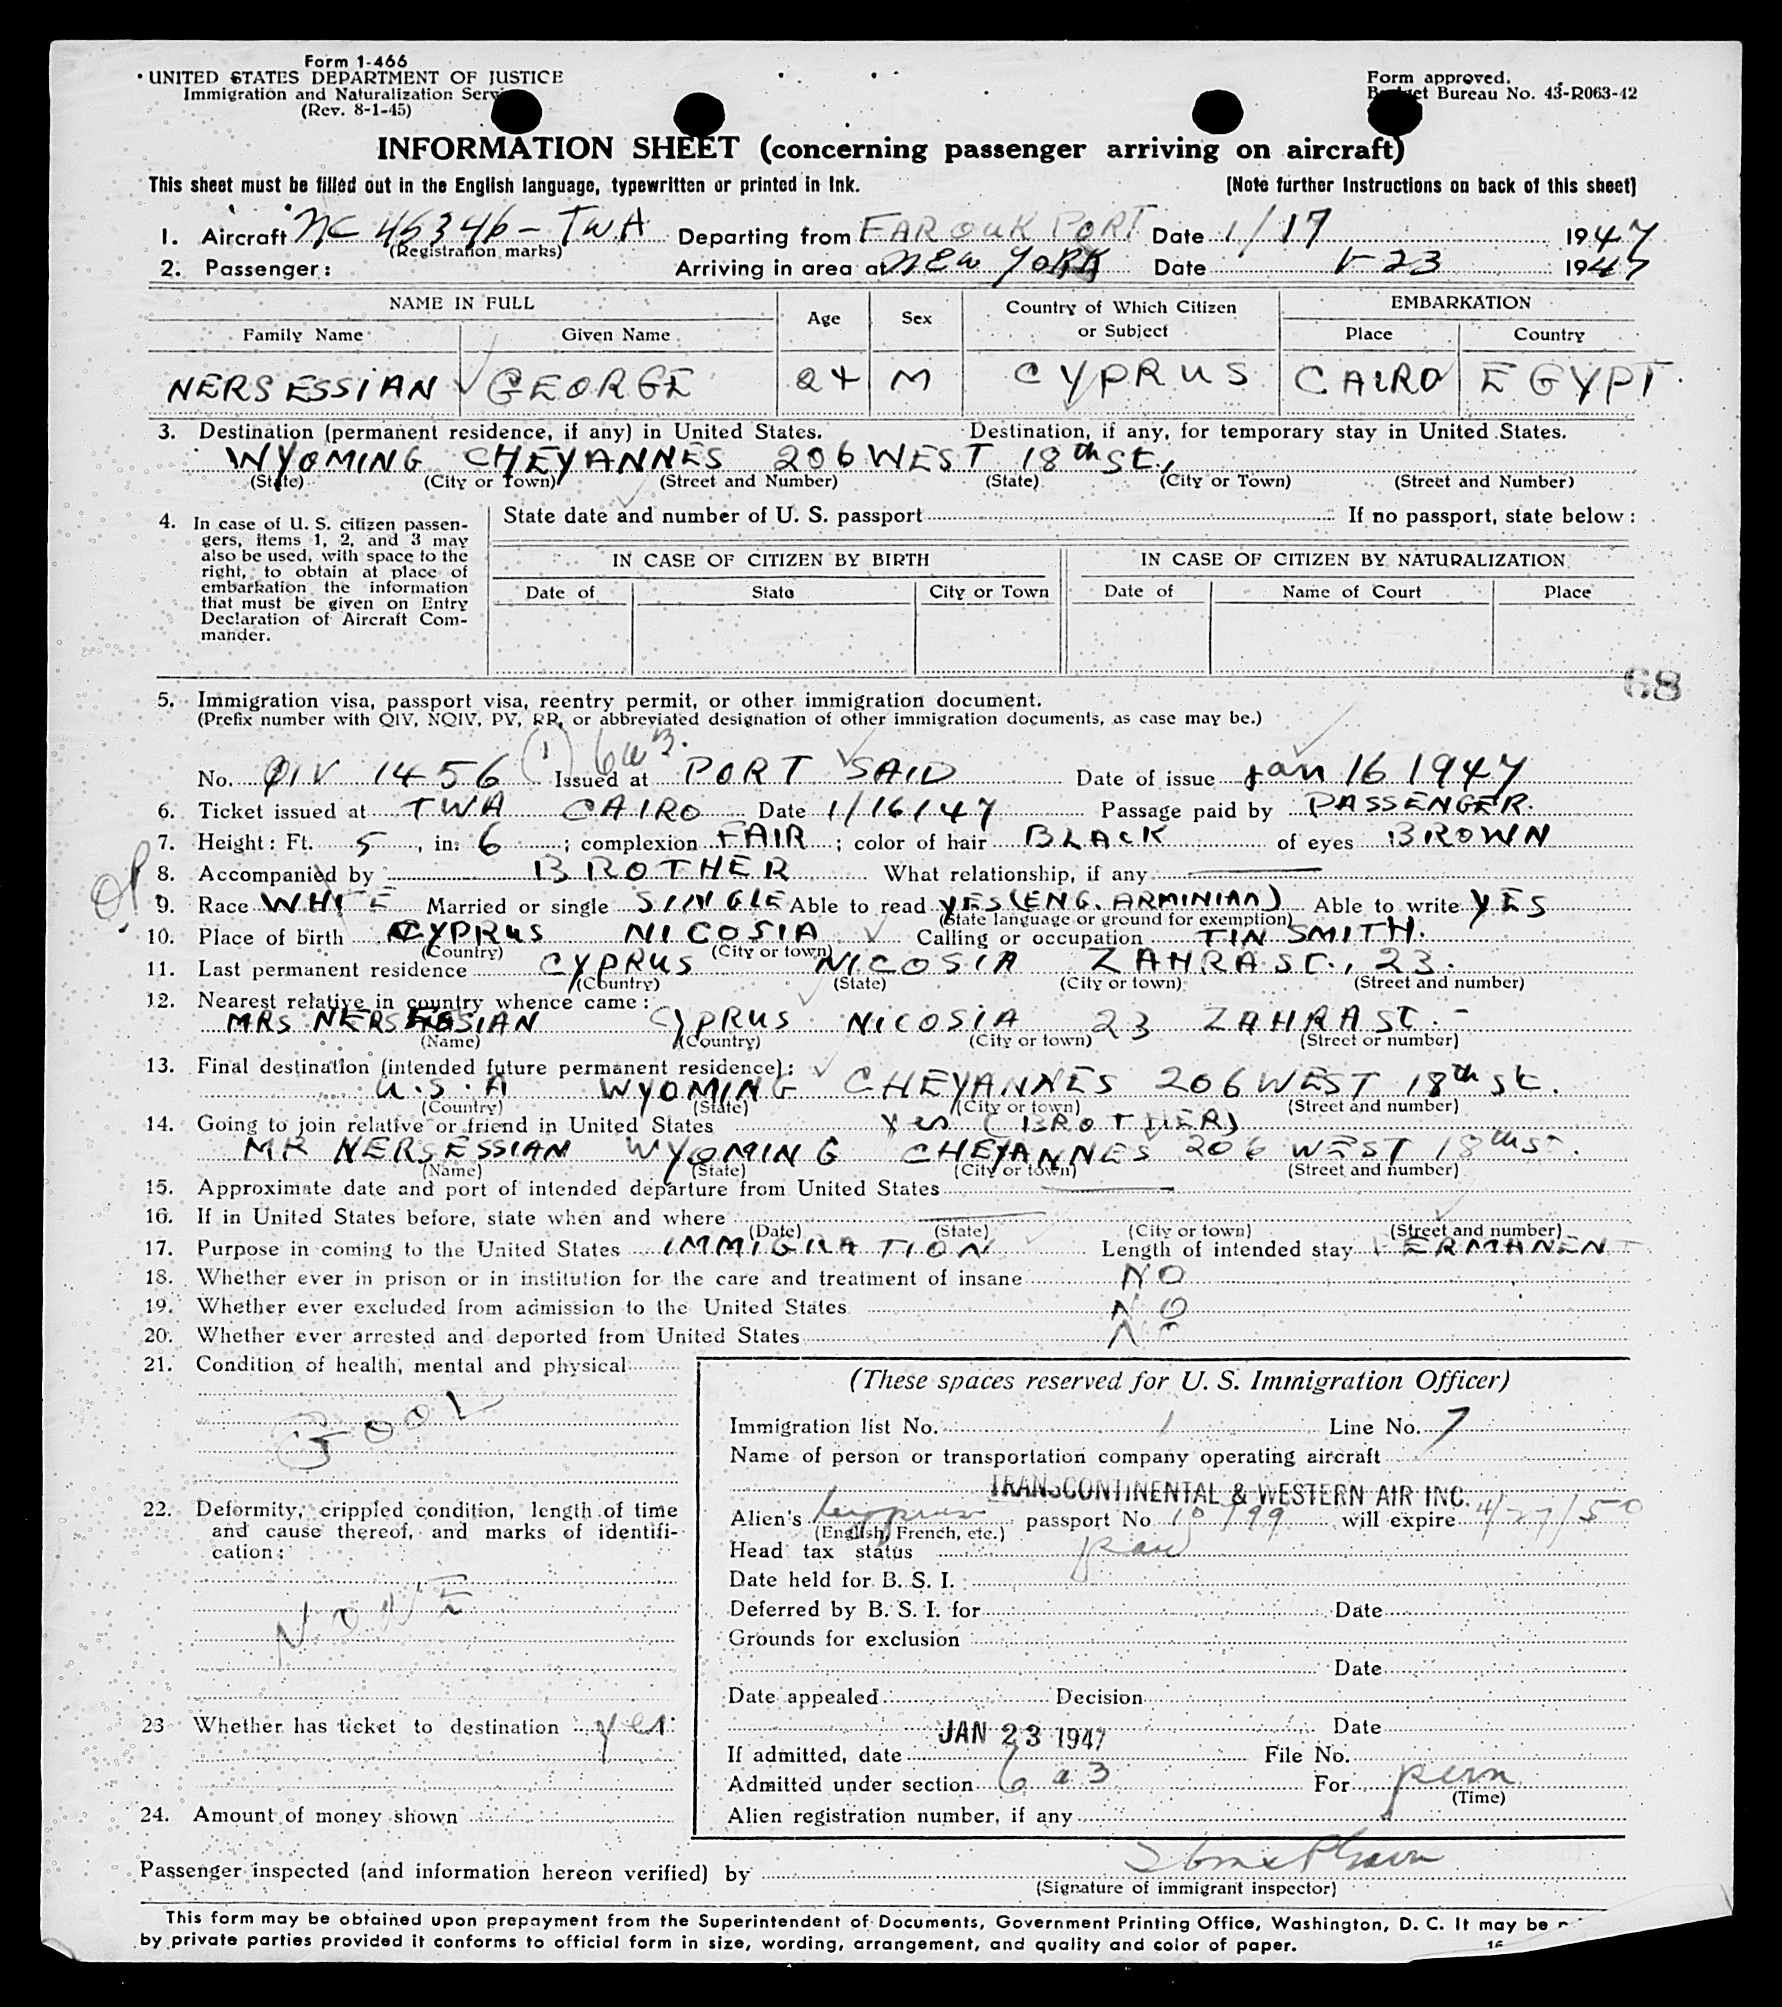 Form 1-466
UNITED STATES DEPARTMENT OF JUSTICE
Immigration and Naturalization
(Rev. 8-1-45)
Form approved.
Budget Bureau No. 43-R063-42
INFORMATION SHEET (concerning passenger arriving on aircraft)
This sheet must be filled out in the English language, typewritten or printed in ink.
[Note further Instructions on back of this sheet]
1. Aircraft NC 45346 - TWA Departing from FAROUK PORT Date 1/17 1947
(Registration marks)
2. Passenger: Arriving in area at NEW YORK Date 1-23 1947
NAME IN FULL Country of Which Citizen or Subject EMBARKATION
Family Name Given Name Age Sex Place Country
NERSESSIAN GEORGE 24 M CYPRUS CAIRO EGYPT.
3. Destination (permanent residence, if any) in United States. Destination, if any, for temporary stay in United States.
WYOMING CHEYANNES 206 WEST 18th St.,
(State) (City or Town) (Street and Number) (State) (City or Town) (Street and Number)
4. In case of U. S. citizen passen-
gers, items 1, 2, and 3 may
also be used, with space to the
right, to obtain at place of
embarkation the information
that must be given on Entry
Declaration of Aircraft Com-
mander.
State date and number of U. S. passport If no passport, state below:
IN CASE OF CITIZEN BY BIRTH IN CASE OF CITIZEN BY NATURALIZATION
Date of State City or Town Date of Name of Court Place
68
5. Immigration visa, passport visa, reentry permit, or other immigration document.
(Prefix number with QIV, NQIV, PV, RP, or abbreviated designation of other immigration documents, as case may be.)
(1) 6a3.
No. QIV 1456 Issued at PORT SAID Date of issue Jan 16 1947
6. Ticket issued at TWA CAIRO Date 1/16/47 Passage paid by PASSENGER.
7. Height: Ft. 5, in: 6; complexion FAIR; color of hair BLACK of eyes BROWN
8. Accompanied by BROTHER What relationship, if any
9. Race WHITE Married or single SINGLE Able to read YES (ENG. ARMINIAN) Able to write YES
(State language or ground for exemption)
10. Place of birth CYPRUS NICOSIA Calling or occupation TIN SMITH.
(Country) (City or town)
11. Last permanent residence CYPRUS NICOSIA ZAHRA ST., 23.
(Country) (State) (City or town) (Street and number)
12. Nearest relative in country whence came:
MRS NERSESSIAN CYPRUS NICOSIA 23 ZAHRA ST. -
(Name) (Country) (City or town) (Street or number)
13. Final destination (intended future permanent residece):
U.S.A WYOMING CHEYANNES 206 WEST 18th St.
(Country) (State) (City or town) (Street and number)
14. Going to join relative or friend in United States Yes (BROTHER)
MR NERSESSIAN WYOMING CHEYANNES 206 WEST 18th St.
(Name) (State) (City or town) (Street and number)
15. Approximate date and port of intended departure from United States
16. If in United States before, state when and where
(Date) (State) (City or town) (Street and number)
17. Purpose in coming to the United States IMMIGRATION Length of intended stay PERMANENT
18. Whether ever in prison or in institution for the care and treatment of insane NO
19. Whether ever excluded from admission to the United States NO
20. Whether ever arrested and deported from United States NO
21. Condition of health, mental and physical
GOOD
22. Deformity, crippled condition, length of time
and cause thereof, and marks of identifi-
cation:
NONE
23 Whether has ticket to destination yes
24. Amount of money shown
(These spaces reserved for U. S. Immigration Officer)
Immigration list No. 1 Line No. 7
Name of person or transportation company operating aircraft
TRANSCONTINENTAL & WESTERN AIR INC.
Alien's passport No 10199 will expire 4/27/50
(English, French, etc.)
Head tax status
Date held for B. S. I.
Deferred by B. S. I. for Date
Grounds for exclusion
Date
Date appealed Decision
Date
If admitted, date JAN 23 1947 File No.
Admitted under section 6 a 3 For perm
(Time)
Alien registration number, if any
Passenger inspected (and information hereon verified) by
(Signature of immigrant inspector)
This form may be obtained upon prepayment from the Superintendent of Documents, Government Printing Office, Washington, D. C. It may be
by private parties provided it conforms to official form in size, wording, arrangement, and quality and color of paper.